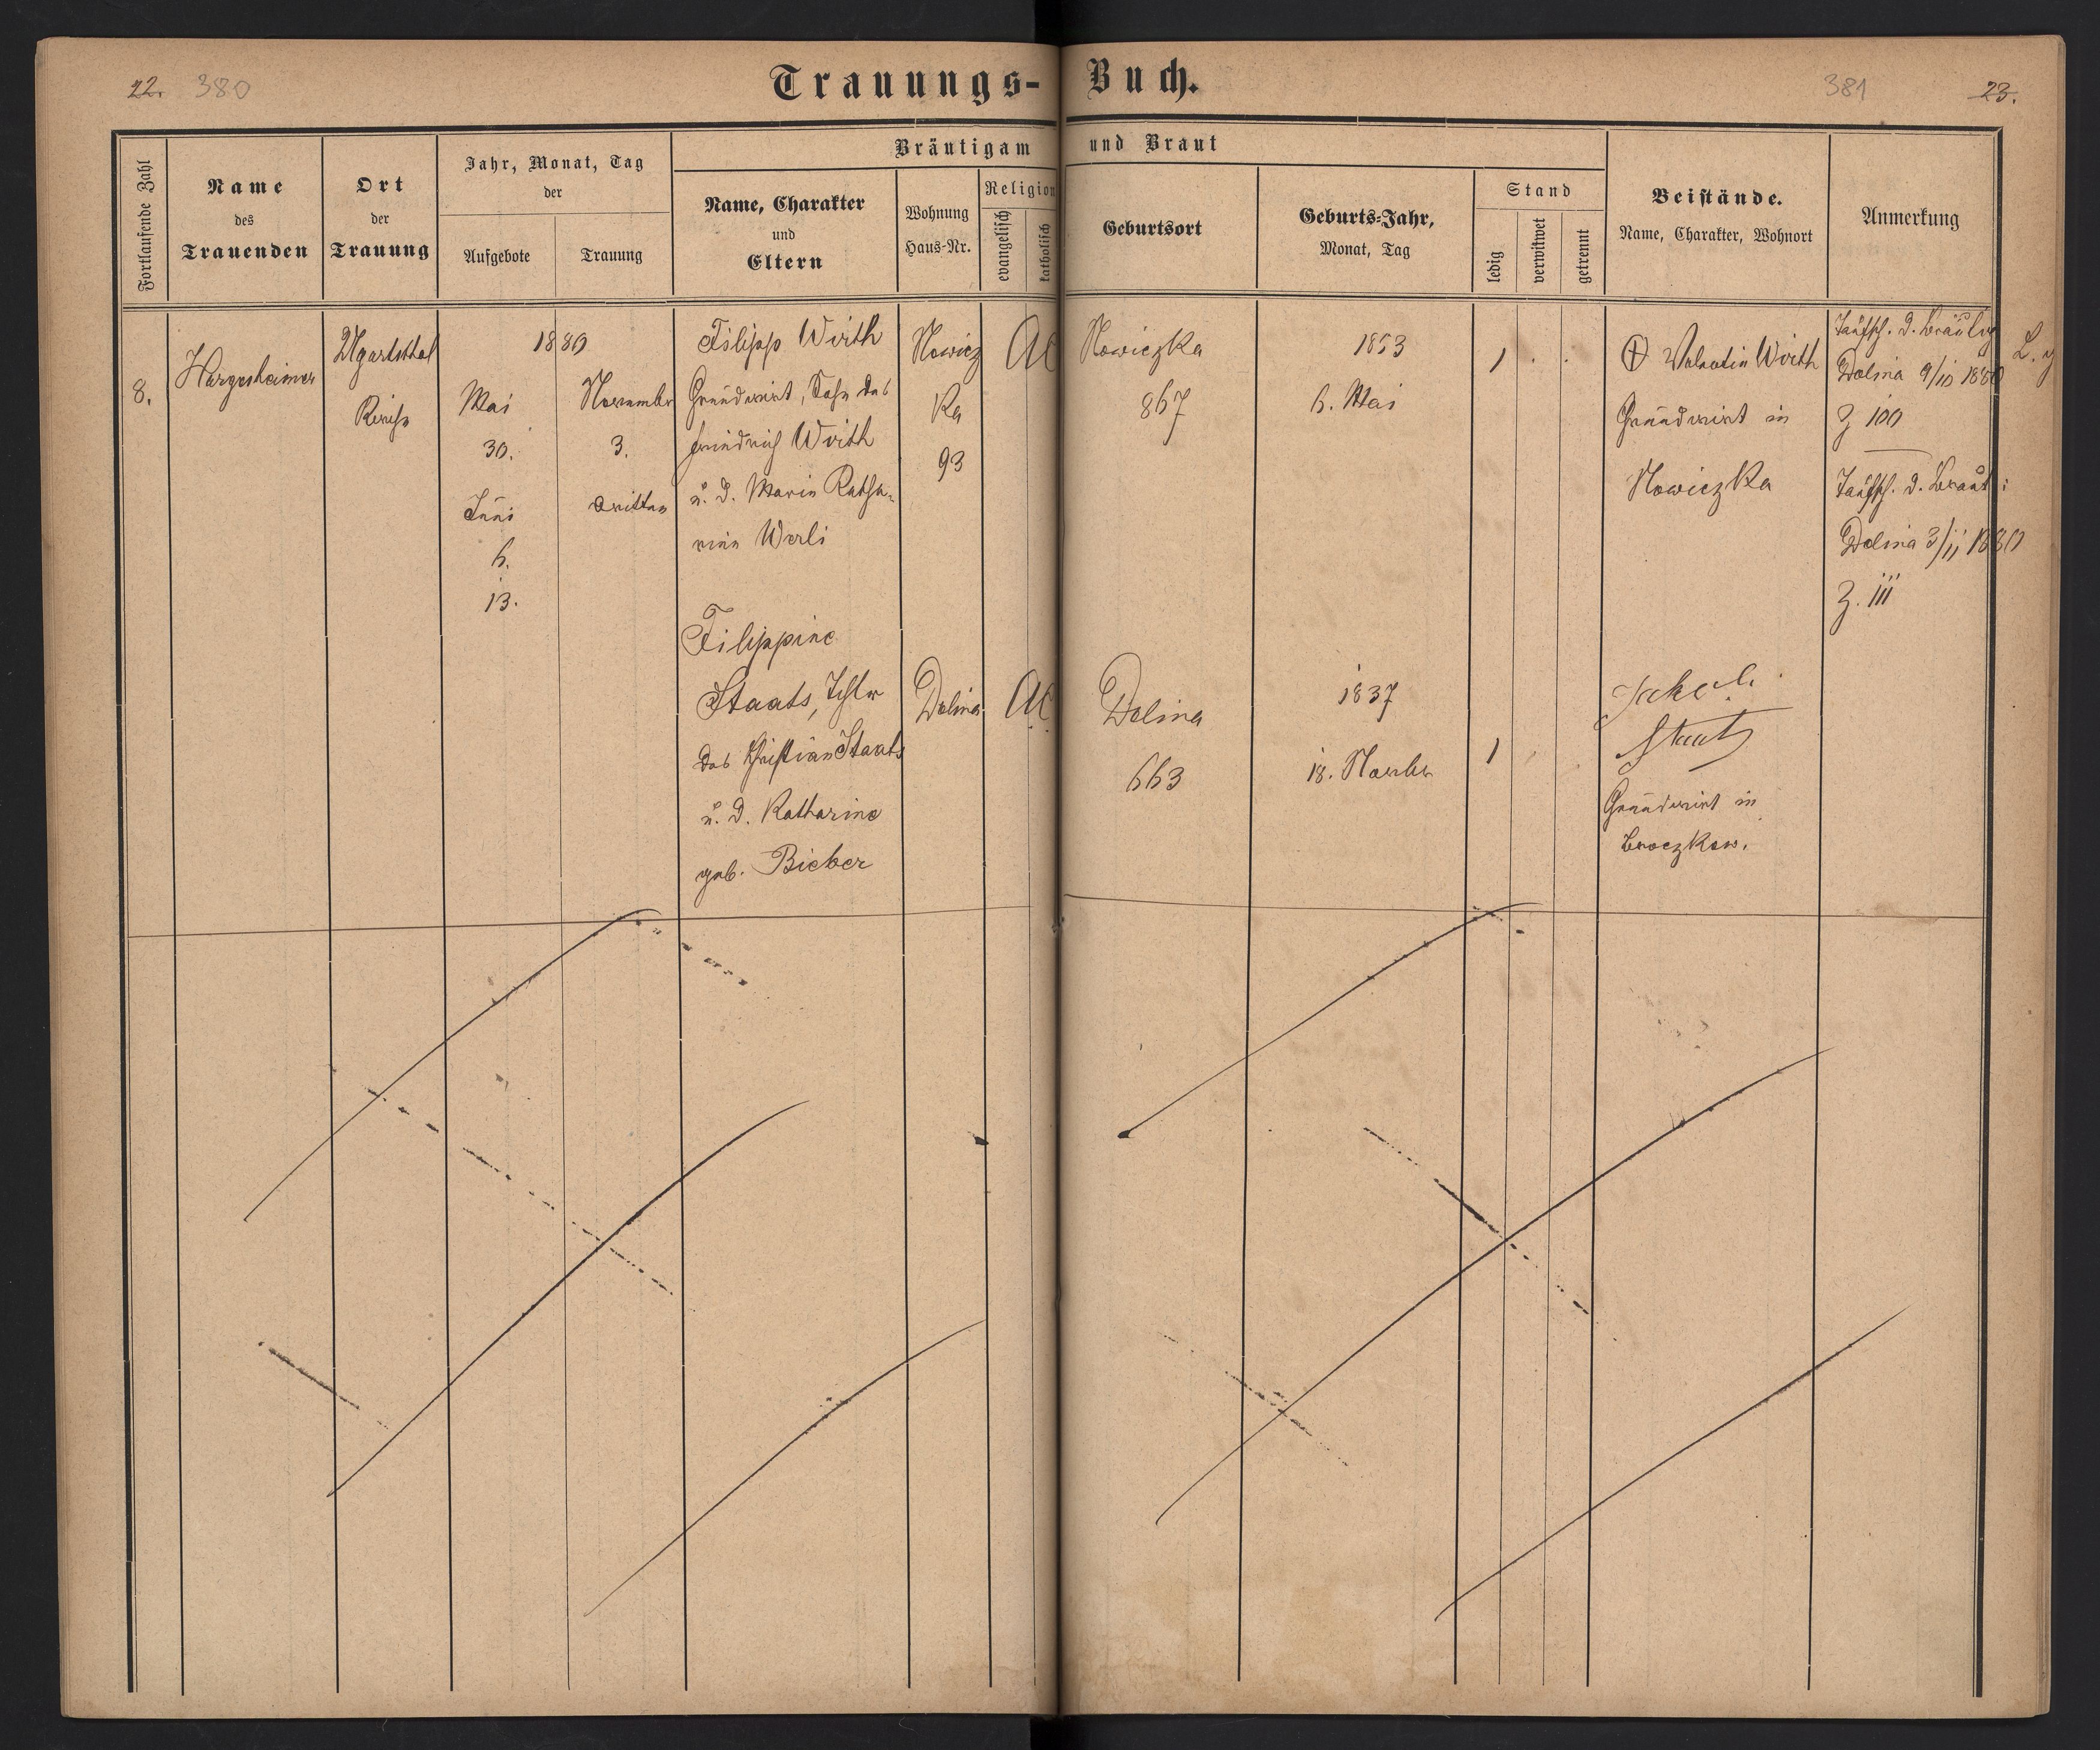 22. 380
Trauungs-Buch.
381 23.
Fortlaufende Zahl
Name
des
Trauenden
Ort
der
Trauung
Jahr, Monat, Tag
der
Aufgebote
Trauung
Bräutigam und Braut
Name, Charakter
und
Eltern
Wohnung
Haus-Nr.
Religion
evangelisch
katholisch
Geburtsort
Geburts-Jahr,
Monat, Tag
Stand
ledig
verwitwet
getrennt
Beistände.
Name, Charakter, Wohnort
Anmerkung
8.
Hargesheimer
Ugartsthal
1880
Mai
30.
Juni
6.
13.
November
3.
dritten
Filipp Wirth
Grundwirt, Sohn des
Friedrich Wirth
u. d. Maria Katha-
rina Werli
Nowicz
Ka
93
AC
Nowiczka
867
1853
6. Mai
1
Valentin Wirth
Grundwirt in
Nowiczka
Taufsch. d. Bräutig
Dolina 9/10 1880
Z 100
Taufsch. d. Braut:
Dolina 3/11 1880
Z. 111
Filippine
Staats, Tchtr
des Christian Staats
u. d. Katharine
geb. Bieber
Dolina
AC
Dolina
663
1837
18. Novbr
1
Jakob
Staats
Grundwirt in
Broczkow.